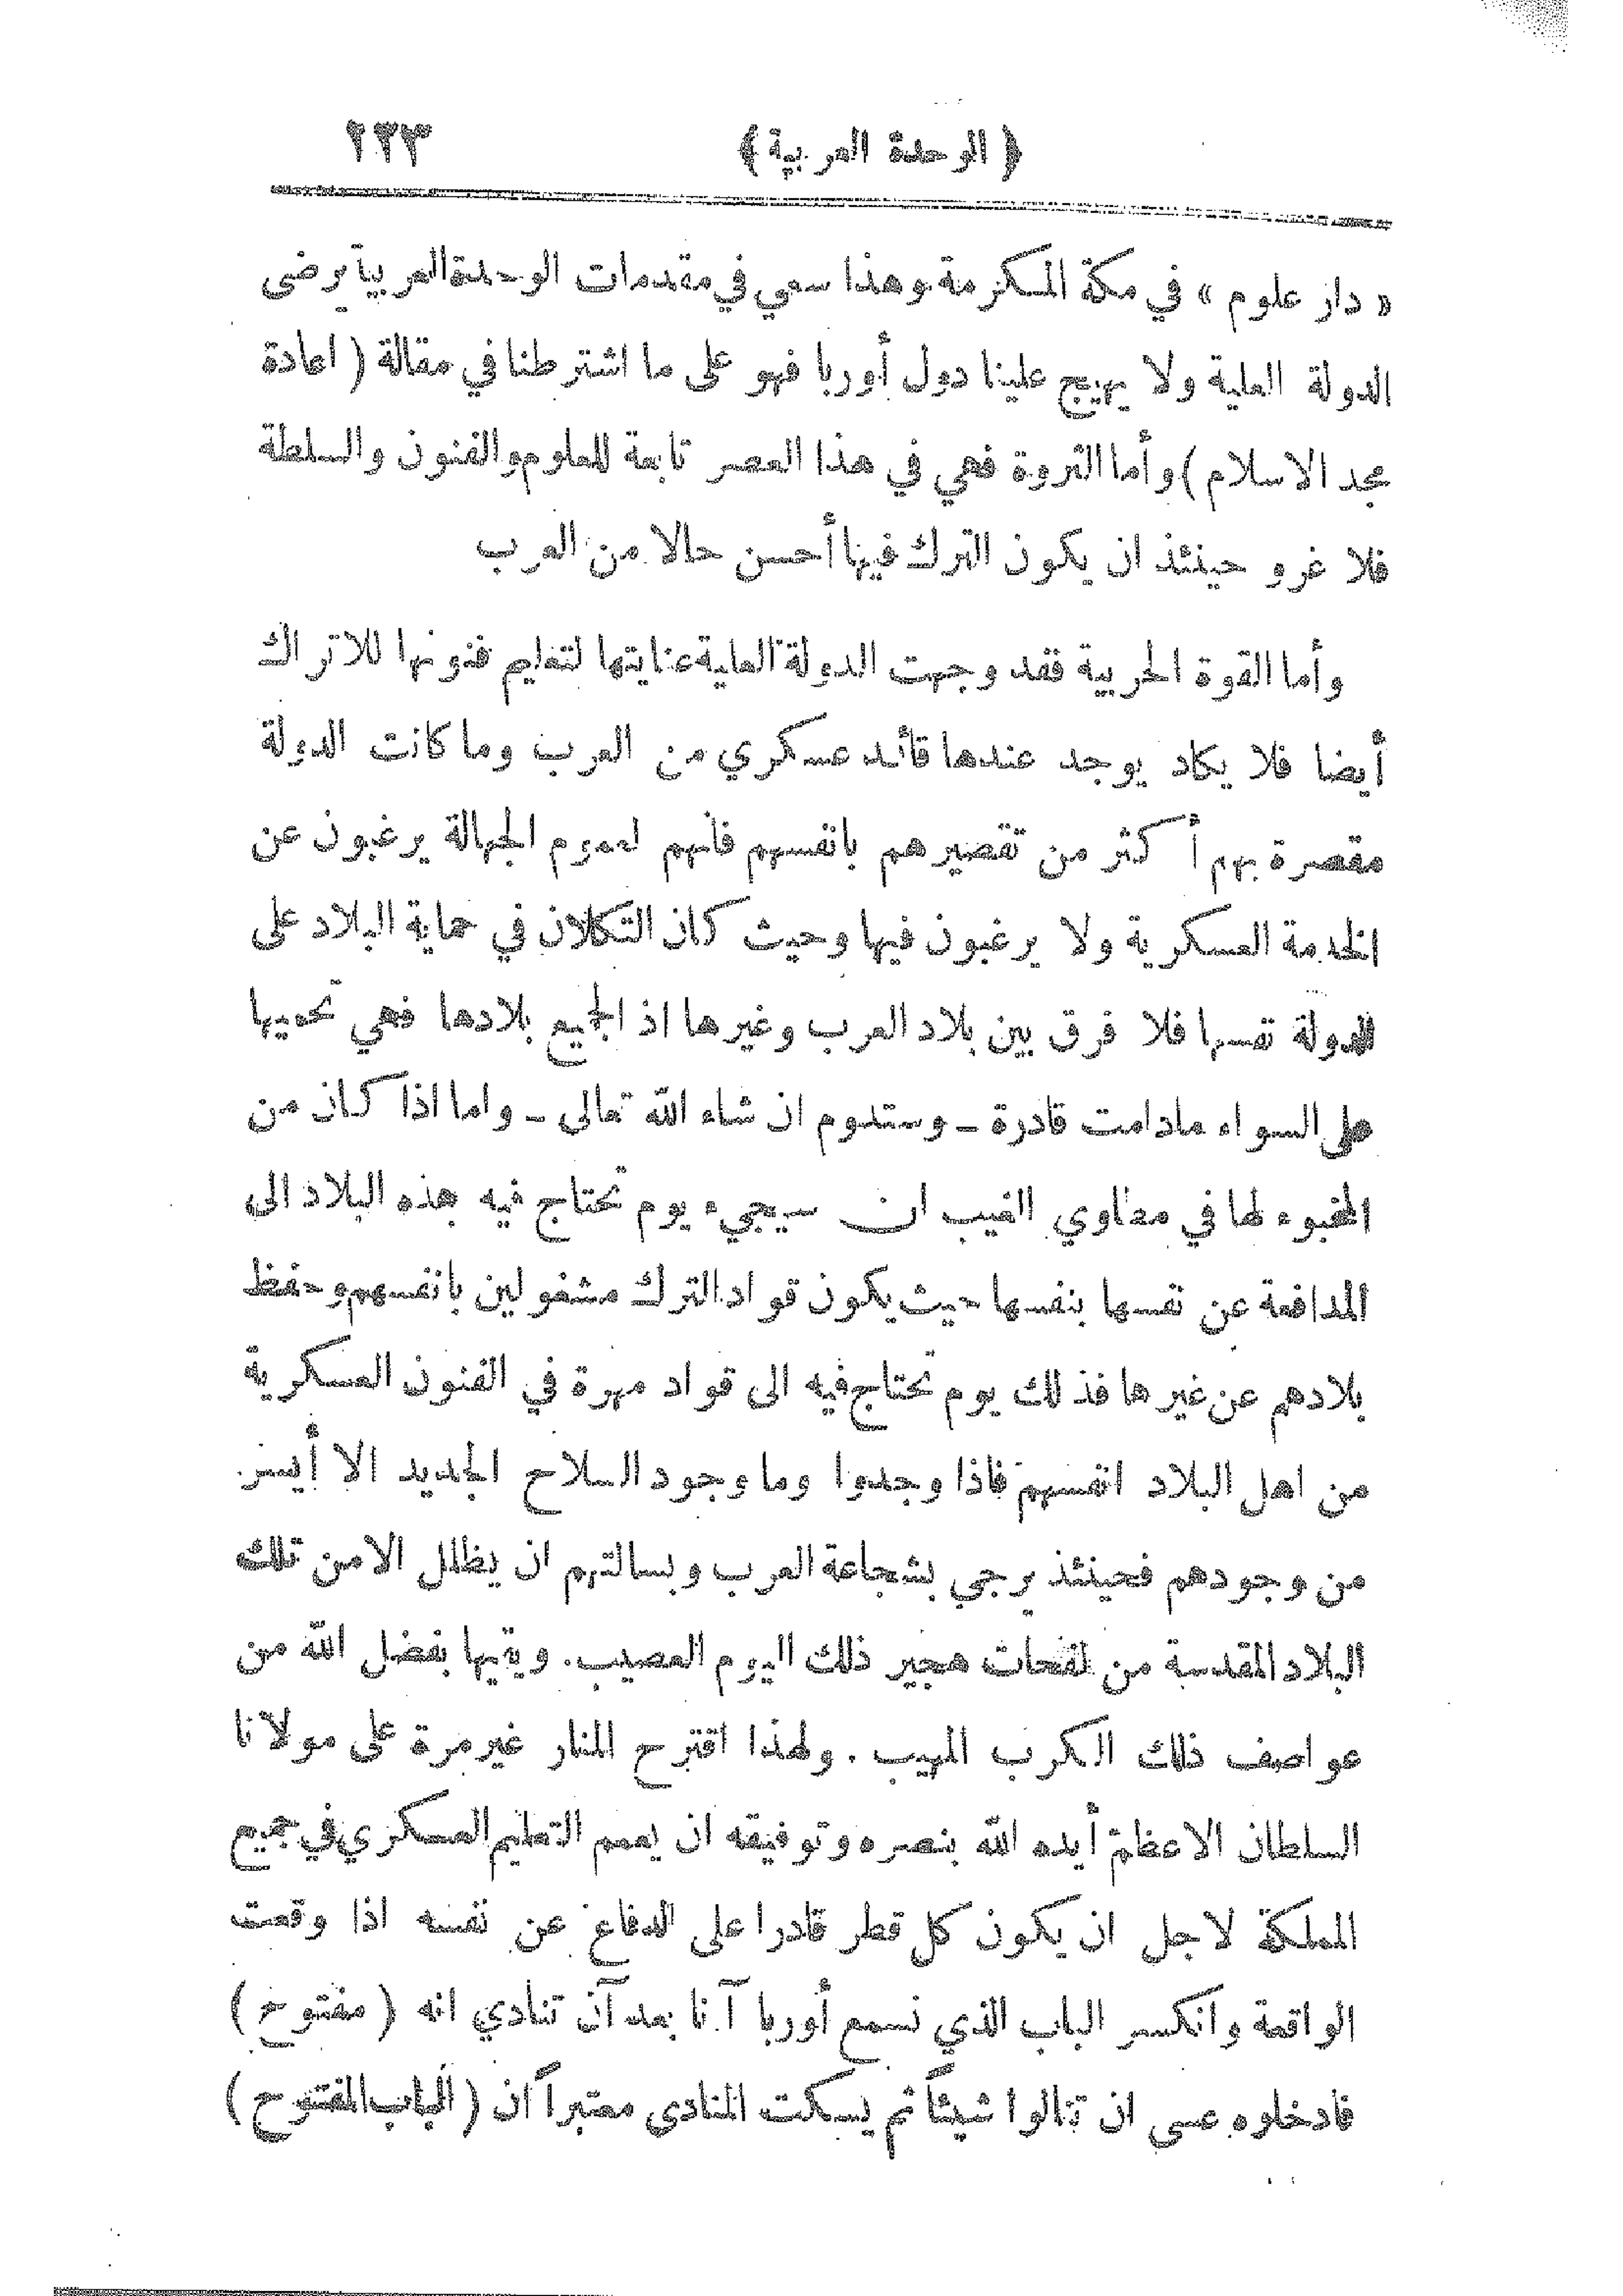 ﴿ الوحدة العربية ﴾ ٢٣٣
« دار علوم » في مكة المكرمة وهذا سعي في مقدمات الوحدة العربية يرضى
الدولة العلية ولا يهيج علينا دول أوربا فهو على ما اشترطنا في مقالة ( اعادة
مجد الاسلام ) وأما الثروة فهي في هذا العصر تابعة للعلوم والفنون والسلطة
فلا غرو حينئذ ان يكون الترك فيها أحسن حالا من العرب
وأما القوة الحربية فقد وجهت الدولة العلية عنايتها لتعليم فنونها للاتراك
أيضا فلا يكاد يوجد عندها قائد عسكري من العرب وما كانت الدولة
مقصرة بهم أكثر من تقصيرهم بانفسهم فانهم لعموم الجهالة يرغبون عن
الخدمة العسكرية ولا يرغبون فيها وحيث كان التكلان في حماية البلاد على
الدولة نفسها فلا فرق بين بلاد العرب وغيرها اذ الجميع بلادها فهي تحميها
على السواء مادامت قادرة ـ وستدوم ان شاء الله تعالى ـ واما اذا كان من
المخبوء لها في مطاوي الغيب ان سيجيء يوم تحتاج فيه هذه البلاد الى
المدافعة عن نفسها بنفسها حيث يكون قواد الترك مشغولين بانفسهم وحفظ
بلادهم عن غيرها فذلك يوم تحتاج فيه الى قواد مهرة في الفنون العسكرية
من اهل البلاد انفسهم فاذا وجدوا وما وجود السلاح الجديد الا أيسر
من وجودهم فحينئذ يرجي بشجاعة العرب وبسالتهم ان يظلل الامن تلك
البلاد المقدسة من لفحات هجير ذلك اليوم العصيب. ويقيها بفضل الله من
عواصف ذلك الكرب المهيب . ولهذا اقترح المنار غير مرة على مولانا
السلطان الاعظم أيده الله بنصره وتوفيقه ان يعمم التعليم العسكري في جميع
المملكة لاجل ان يكون كل قطر قادرا على الدفاع عن نفسه اذا وقعت
الواقعة وانكسر الباب الذي نسمع أوربا آنا بعد آن تنادي انه ( مفتوح )
فادخلوه عسى ان تنالوا شيئاً ثم يسكت المنادى معتبراً ان ( الباب المفتوح )